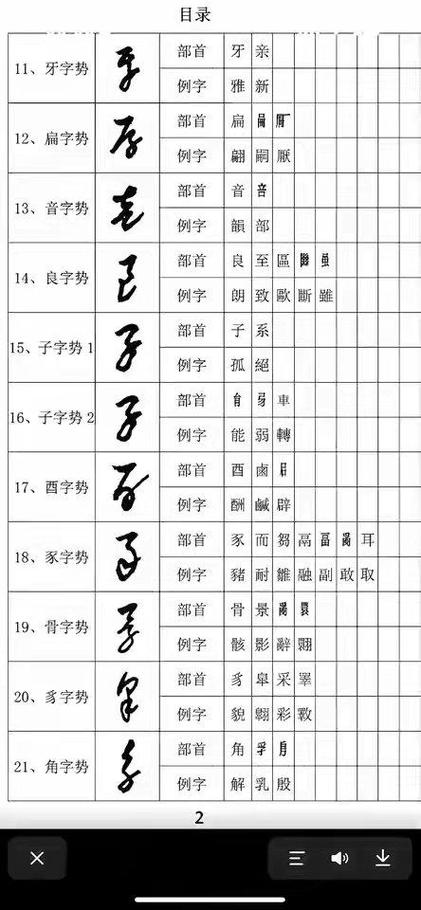 目录
11、牙字势
部首 牙 亲
例字 雅 新
12、扁字势
部首 扁
例字 翩 嗣 厭
13、音字势
部首 音
例字 韻 部
14、良字势
部首 良 至 區
例字 朗 致 歐 斷 雖
15、子字势 1
部首 子 系
例字 孤 絕
16、子字势 2
部首 車
例字 能 弱 轉
17、酉字势
部首 酉 鹵
例字 酬 鹹 辟
18、豕字势
部首 豕 而 芻 鬲 耳
例字 豬 耐 雛 融 副 敢 取
19、骨字势
部首 骨 景
例字 骸 影 辭 翾
20、豸字势
部首 豸 皋 采 睪
例字 貌 翱 彩 斁
21、角字势
部首 角
例字 解 乳 殷
2